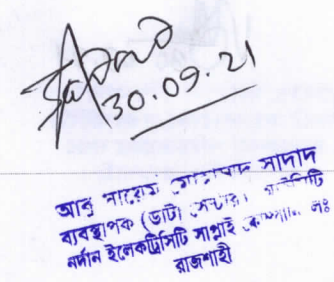 30.09.21
আবু নায়েম মোহাম্মদ সাদাদ
ব্যবস্থাপক (ডাটা সেন্টার)
নর্দান ইলেকট্রিসিটি সাপ্লাই কোম্পানি লিঃ
রাজশাহী